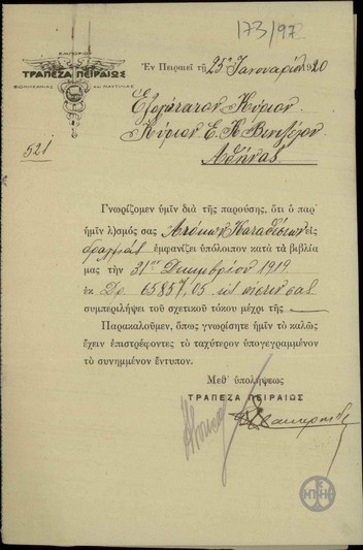 173/97
ΕΜΠΟΡΙΟ
ΤΡΑΠΕΖΑ ΠΕΙΡΑΙΩΣ
ΒΙΟΜΗΧΑΝΙΑ ΚΑΙ ΝΑΥΤΙΛΙΑ
Ἐν Πειραιεῖ τῇ 25ῃ Ἰανουαρίου 1920
Ἐξοχώτατον Κύριον
Κύριον Ε. Κ. Βενιζέλον
Ἀθήνας
521
Γνωρίζομεν ὑμῖν διὰ τῆς παρούσης, ὅτι ὁ παρ'
ἡμῖν λ)σμός σας Ἀτόκων Καταθέσεων εἰς
δραχμάς ἐμφανίζει ὑπόλοιπον κατὰ τὰ βιβλία
μας τὴν 31ην Δεκεμβρίου 1919
ἐκ Δρ 65857,05 εἰς πίστιν σας
συμπεριλήψει τοῦ σχετικοῦ τόκου μέχρι τῆς
Παρακαλοῦμεν, ὅπως γνωρίσητε ἡμῖν τὸ καλῶς
ἔχειν ἐπιστρέφοντες τὸ ταχύτερον ὑπογεγραμμένον
τὸ συνημμένον ἔντυπον.
Μεθ' ὑπολήψεως
ΤΡΑΠΕΖΑ ΠΕΙΡΑΙΩΣ